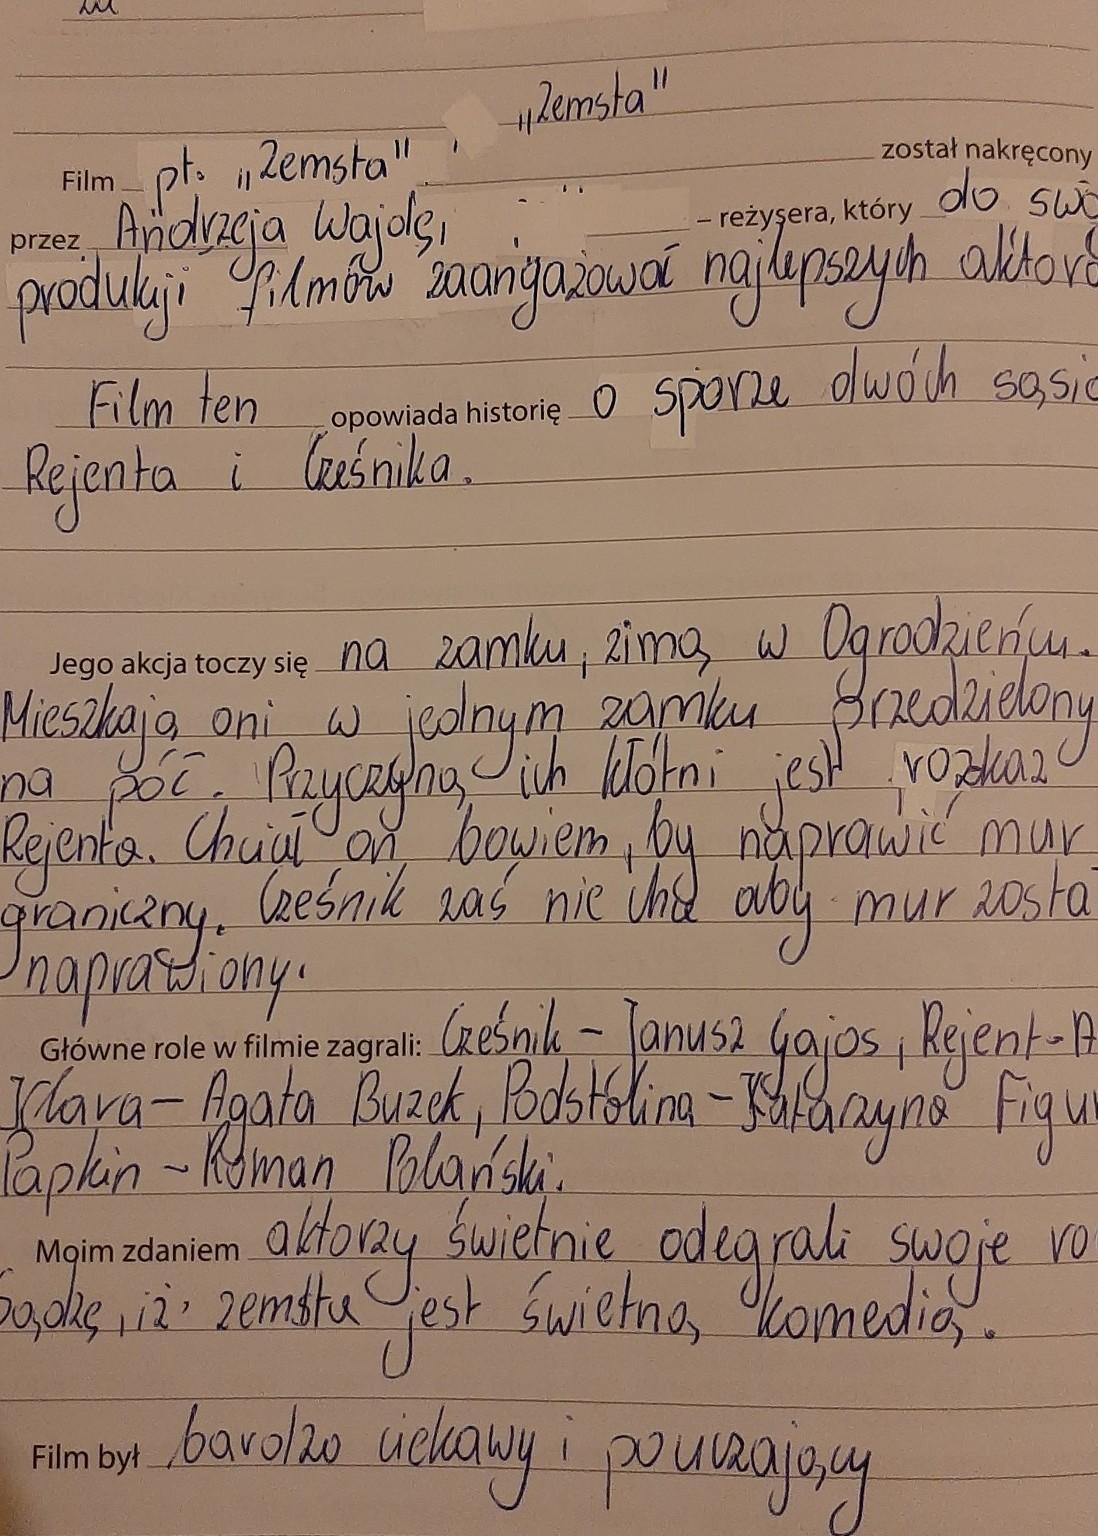 „Zemsta"
Film pt. „Zemsta" został nakręcony
przez Andrzeja Wajdę, – reżysera, który do
produkji filmów zaangażował najlepszych
Film ten opowiada historię o sporze dwóch
Rejenta i Cześnika.
Jego akcja toczy się na zamku, zimą w Ogrodzieńcu.
Mieszkają oni w jednym zamku przedzielony
na pół. Przyczyną ich kłótni jest rozkaz
Rejenta. Chciał on bowiem, by naprawić mur
graniczny. Cześnik zaś nie chce aby mur
naprawiony.
Główne role w filmie zagrali: Cześnik – Janusz Gajos, Rejent - A
Klara – Agata Buzek, Podstolina – Katarzyna
Papkin – Roman Polański.
Moim zdaniem aktorzy świetnie odegrali swoje
iż zemsta jest świetną komedią.
Film był bardzo ciekawy i pouczający